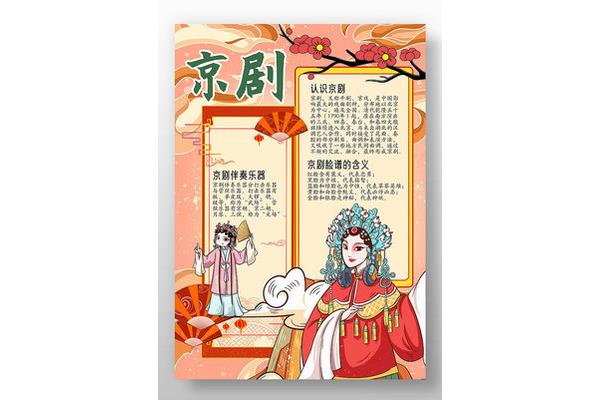 京剧
认识京剧
京剧，又称平剧、京戏，是中国影
响最大的戏曲剧种，分布地以北京
为中心，遍及全国。清代乾隆五十
五年（1790年）起，原在南方演出
的三庆、四喜、春台、和春四大徽
班陆续进入北京，与来自湖北的汉
调艺人合作，同时接受了昆曲、秦
腔的部分剧目、曲调和表演方法，
又吸收了一些地方民间曲调，通过
不断的交流、融合，最终形成京剧。
京剧脸谱的含义
红脸含有褒义，代表忠勇；
黑脸为中性，代表猛智；
蓝脸和绿脸也为中性，代表草莽英雄；
黄脸和白脸含贬义，代表凶诈凶恶；
金脸和银脸是神秘，代表神妖。
京剧伴奏乐器
京剧伴奏乐器分打击乐器
与管弦乐器。打击乐器有
板、单皮鼓、大锣、铙、
钹等，称为“武场”；管
弦乐器有京胡、京二胡、
月琴、三弦，称为“文场”。